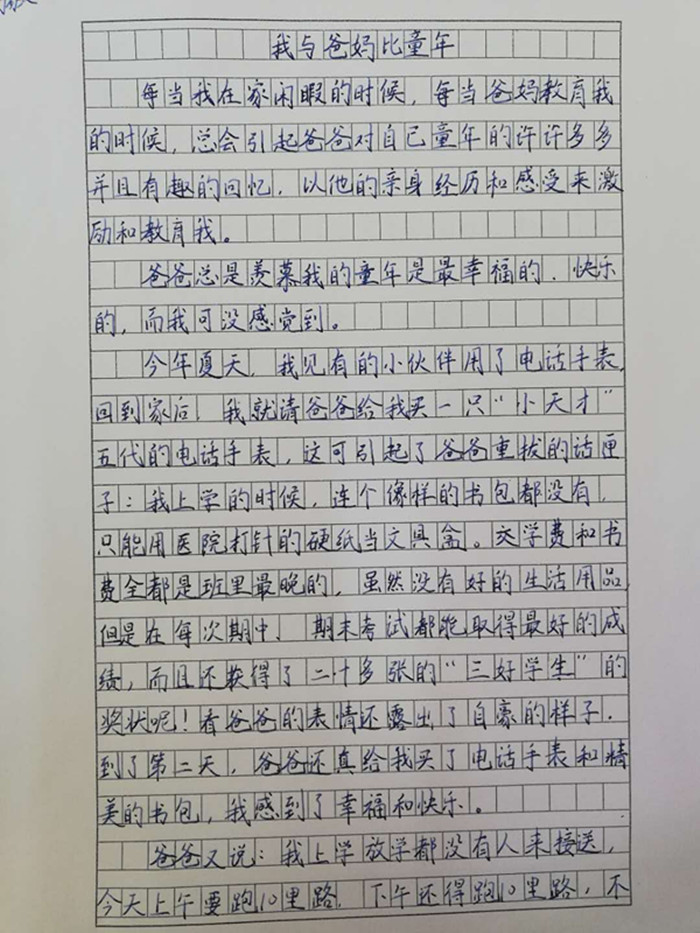 我与爸妈比童年
每当我在家闲暇的时候，每当爸妈教育我
的时候，总会引起爸爸对自己童年的许许多多
并且有趣的回忆，以他的亲身经历和感受来激
励和教育我。
爸爸总是羡慕我的童年是最幸福的、快乐
的，而我可没感觉到。
今年夏天，我见有的小伙伴用了电话手表，
回到家后，我就请爸爸给我买一只“小天才”
五代的电话手表，这可引起了爸爸重拔的话匣
子：我上学的时候，连个像样的书包都没有，
只能用医院打针的硬纸当文具盒。交学费和书
费全都是班里最晚的，虽然没有好的生活用品，
但是在每次期中、期末考试都能取得最好的成
绩，而且还获得了二十多张的“三好学生”的
奖状呢！看爸爸的表情还露出了自豪的样子，
到了第二天，爸爸还真给我买了电话手表和精
美的书包，我感到了幸福和快乐。
爸爸又说：我上学放学都没有人来接送，
今天上午要跑10里路，下午还得跑10里路，不